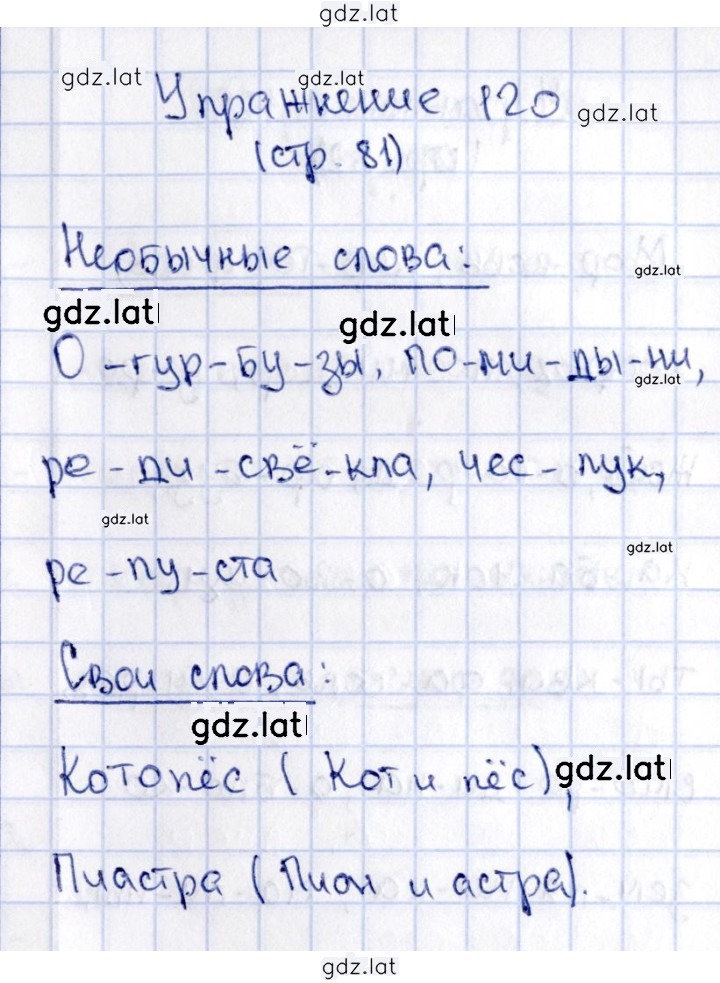 gdz.lat
gdz.lat gdz.lat
Упражнение 120 gdz.lat
(стр. 81)
Необычные слова:
gdz.lat
gdz.lat gdz.lat
О-гур-бу-зы, по-ми-ды-ни,
gdz.lat
ре-ди-свё-кла, чес-лук,
gdz.lat
gdz.lat
ре-пу-ста
Свои слова:
gdz.lat
Котопёс (Кот и пёс), gdz.lat
Пиастра (Пион и астра).
gdz.lat